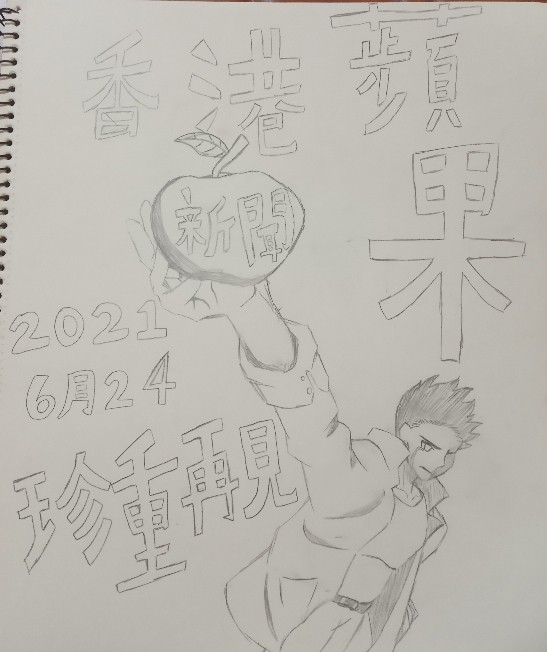 香港
蘋果
新聞
2021
6月24
珍重再見